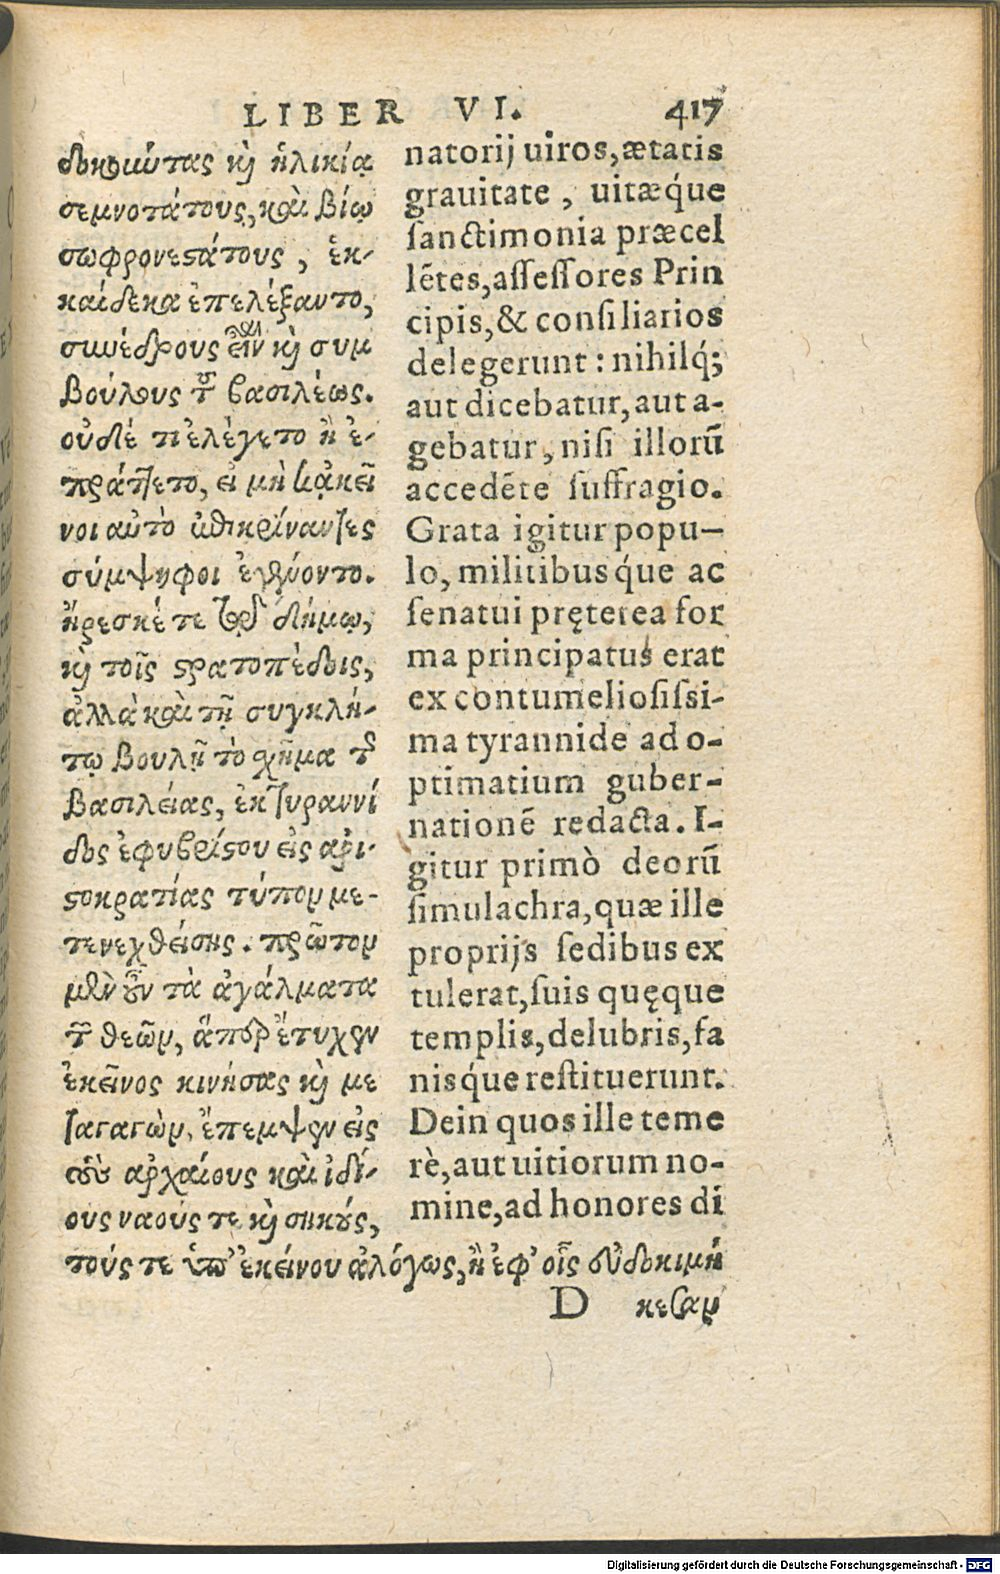 LIBER VI. 417
δοκοῦντας καὶ ἡλικίᾳ
σεμνοτάτους, καὶ βίῳ
σωφρονεστάτους, ἑκ-
καίδεκα ἐπελέξαντο,
συνέδρους εἶναι καὶ συμ
βούλους τοῦ βασιλέως.
οὐδέ τι ἐλέγετο ἢ ἐ-
πράττετο, εἰ μὴ κἀκεῖ
νοι αὐτὸ ἐπικρίναντες
σύμψηφοι ἐγένοντο.
ἤρεσκέ τε τῷ δήμῳ,
καὶ τοῖς στρατοπέδοις,
ἀλλὰ καὶ τῇ συγκλή-
τῳ βουλῇ τὸ σχῆμα τῆς
βασιλείας, ἐκ τυραννί
δος ἐφυβρίστου εἰς ἀρι-
στοκρατίας τύπον με-
τενεχθείσης. πρῶτον
μὲν οὖν τὰ ἀγάλματα
τῶν θεῶν, ἅπερ ἔτυχεν
ἐκεῖνος κινήσας καὶ με
ταγαγὼν, ἔπεμψαν εἰς
τοὺς ἀρχαίους καὶ ἰδί-
ους ναούς τε καὶ σηκούς,
τούς τε ὑπ' ἐκείνου ἀλόγως, ἢ ἐφ' οἷς εὐδοκιμή
natorij uiros, ætatis
grauitate, uitæq́ue
ſanctimonia præcel
lẽtes, aſſeſſores Prin
cipis, & conſiliarios
delegerunt: nihilq́;
aut dicebatur, aut a-
gebatur, niſi illorũ
accedẽte ſuffragio.
Grata igitur popu-
lo, militibusq́ue ac
ſenatui pręterea for
ma principatus erat
ex contumelioſiſsi-
ma tyrannide ad o-
ptimatium guber-
nationẽ redacta. I-
gitur primò deorũ
ſimulachra, quæ ille
proprijs ſedibus ex
tulerat, ſuis quęque
templis, delubris, fa
nisq́ue reſtituerunt.
Dein quos ille teme
rè, aut uitiorum no-
mine, ad honores di
D κεσαν
Digitalisierung gefördert durch die Deutsche Forschungsgemeinschaft - DFG